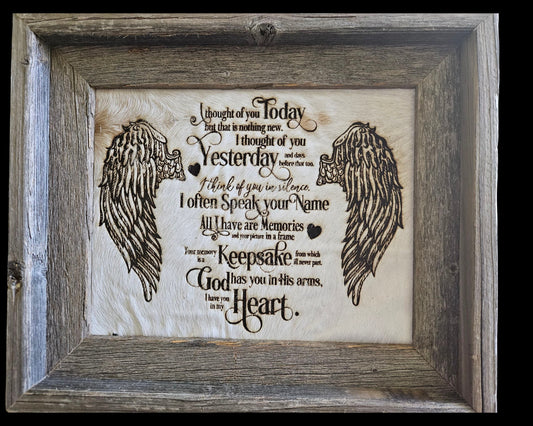 I thought of you Today
but that is nothing new.
I thought of you
Yesterday and days
before that too.
I think of you in silence,
I often Speak your Name
All I have are Memories
and your picture in a frame
Your memory
is a Keepsake from which
i'll never part.
God has you in His arms,
I have you
in my Heart.